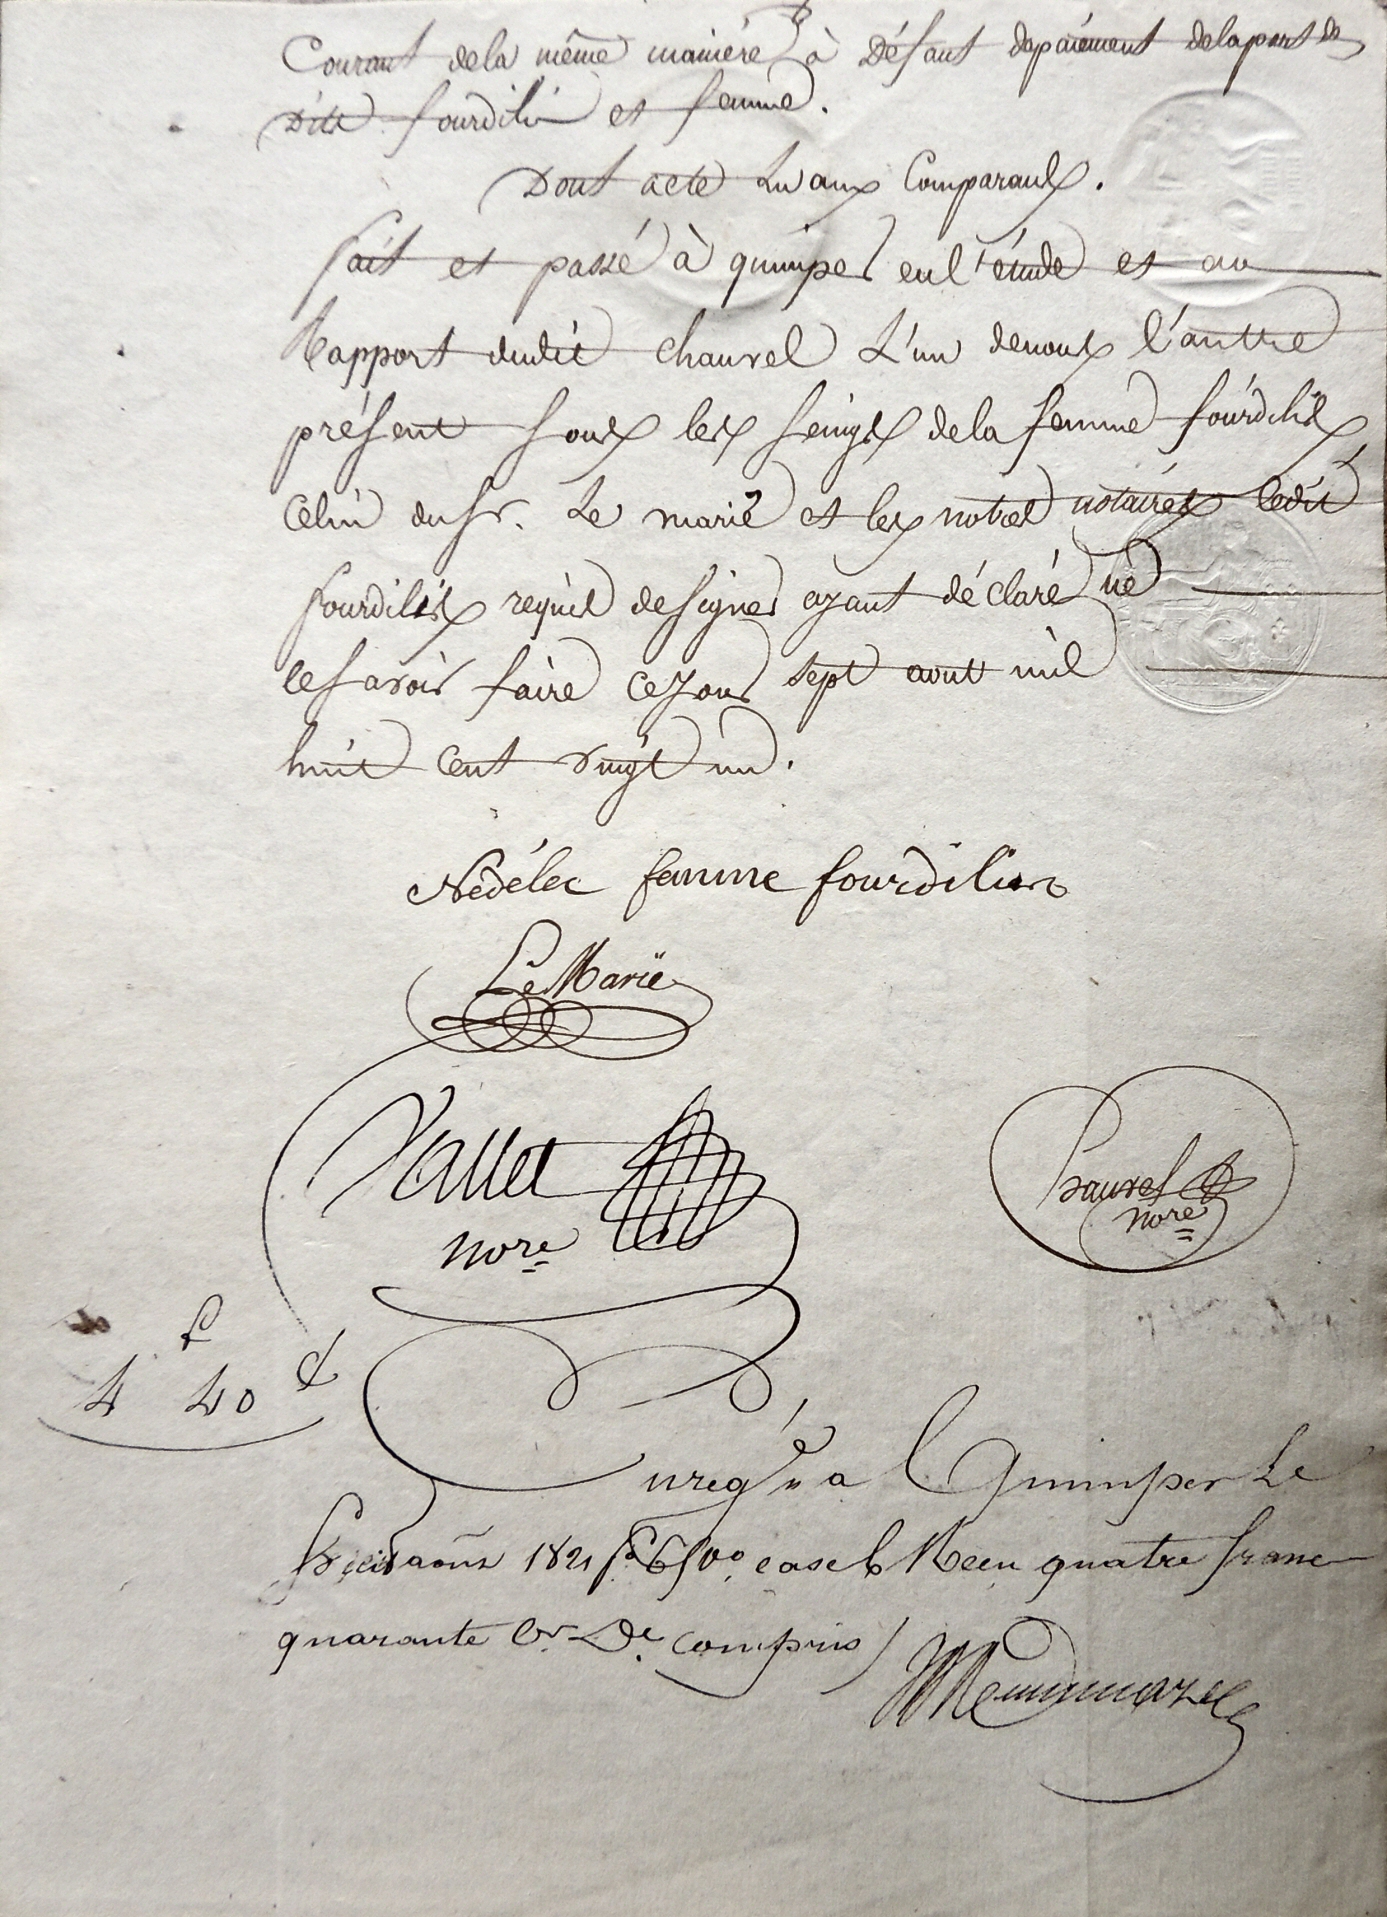 Courant de la même manière à Défaut de paiement de la part des
Dits fourdilis et femme.
Dont acte Lu aux Comparants.
fait et passé à quimper en l'étude et au
Rapport dudit chauvel L'un de nous l'autre
présent sous les seings de la femme fourdilis
celui du Sr. Le marié et les notres notaires ledit
fourdilis requis de signer ayant déclaré ne
le savoir faire ce jour sept aout mil
huit cent vingt un.
Nédélec femme fourdilis
Le Marië
Vallet
nore
Chauvel
nore
f c
4 40
Enregé a Quimper Le
aout 1821 fo 65 Vo. case 6 Recu quatre franc
quarante c. De. compris